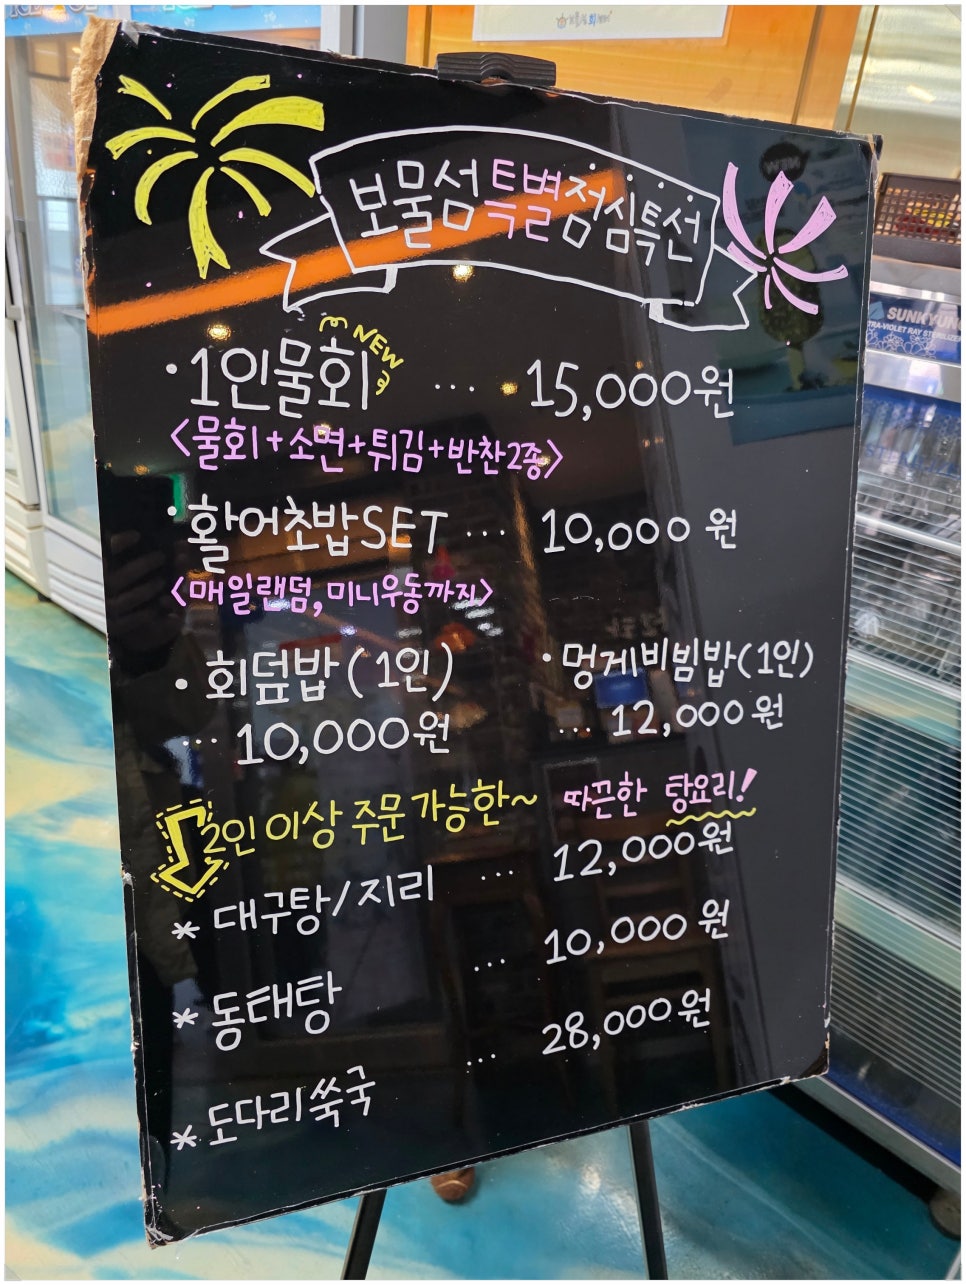 보물섬특별점심특선
·1인물회 NEW ... 15,000원
<물회+소면+튀김+반찬2종>
·활어초밥SET ... 10,000원
<매일랜덤, 미니우동까지>
·회덮밥(1인)
... 10,000원
·멍게비빔밥(1인)
... 12,000원
2인 이상 주문 가능한~ 따끈한 탕요리!
* 대구탕/지리 ... 12,000원
* 동태탕 ... 10,000원
* 도다리쑥국 ... 28,000원
NEW
SUNKYUNG
TRA-VIOLET RAY STERILIZER